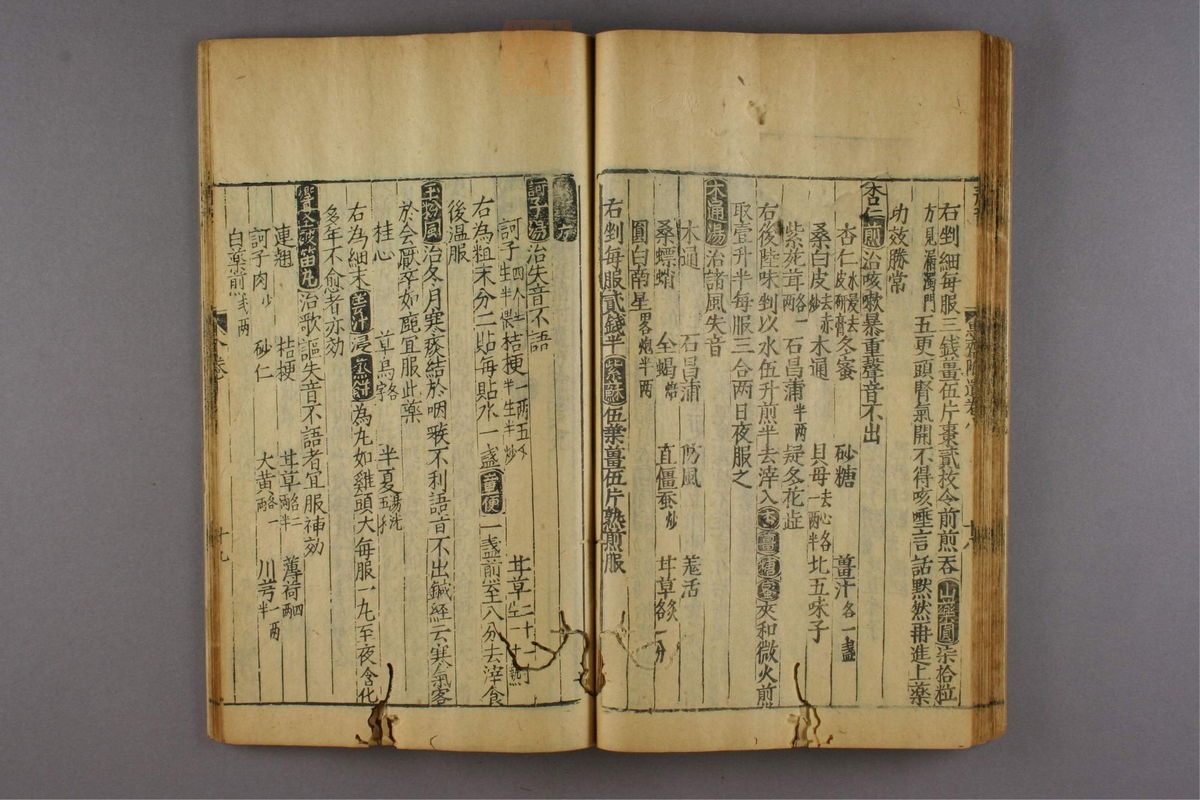 右剉細每服三錢薑伍片棗貳枚令前煎吞山藥圓柒拾粒
方見漏濁門五更頭腎氣開不得咳唾言話黙然再進上藥
功效勝常
杏仁煎治咳嗽暴重聲音不出
杏仁水浸去皮研膏 冬蜜 砂糖 薑汁各一盞
桑白皮去赤炒 木通 貝母去心各一兩半
紫菀茸各一兩 石昌蒲半兩 疑冬花 北五味子
右後陸味剉以水伍升煎半去滓入杏薑糖蜜夾和微火煎
取壹升半每服三合兩日夜服之
木通湯治諸風失音
木通 石昌蒲 防風 羗活
桑螵蛸 全蝎焙 直僵蚕炒 甘草炙各一分
圓白南星畧炮半兩
右剉每服貳錢半紫蘇伍葉薑伍片熟煎服
訶子湯治失音不語
訶子 桔梗一兩五半生半炒 甘草二十
右為粗末分二貼每貼水一盞童便一盞煎至八分去滓食
後温服
玉粉風治冬月寒痰結於咽喉不利語音不出鍼經云寒氣客
於會厭卒如瘂宜服此藥
桂心 草烏各字 半夏湯洗
右為細末薑汁浸蒸餅為丸如雞頭大每服一丸至夜含化
多年不愈者亦効
響聲破笛丸治歌謳失音不語者宜服神効
連翹 桔梗 甘草各二兩半 薄荷四兩
訶子肉炒 砂仁 大黃各一兩 川芎一兩半
白藥煎貳兩
十九